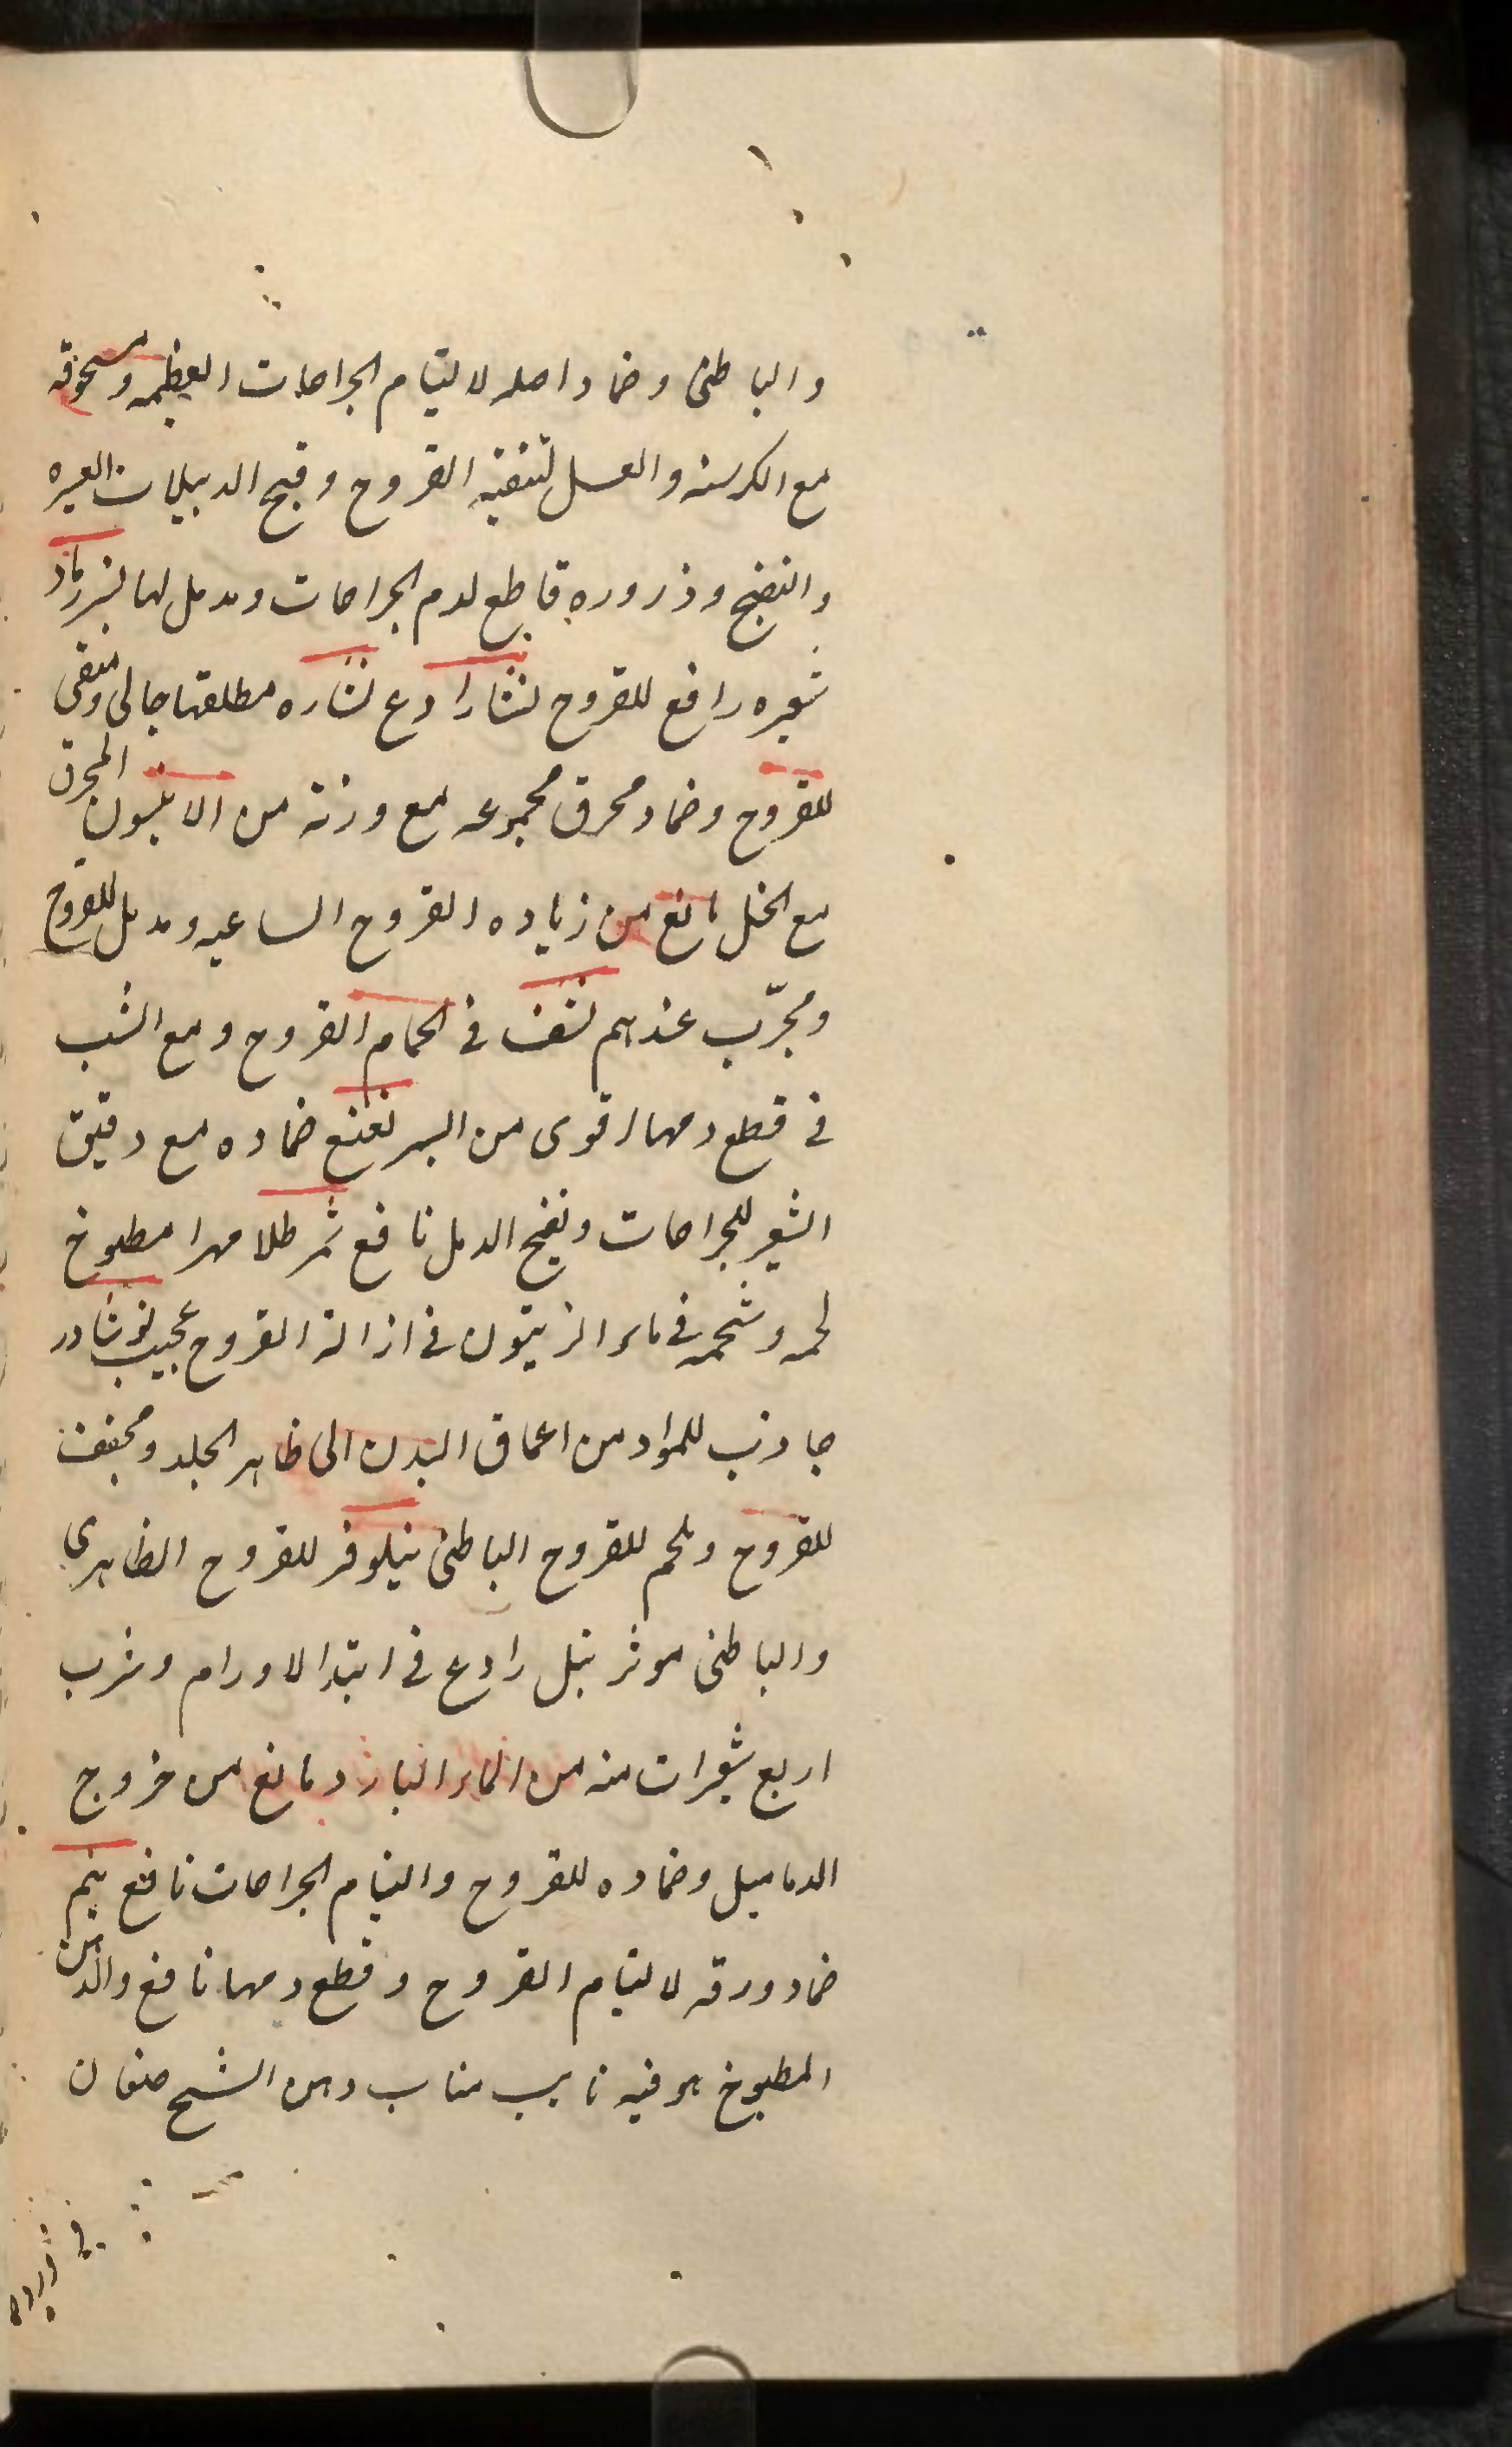 والباطنى وضماد اصله لالتيام الجراحات العظيمه ومسحوقه
مع الكرسنه والعسل لتنقيه القروح وقيح الدبيلات العسره
والنضج وذروره قاطع لدم الجراحات ومدمل لها نسر رماد
شعره رافع للقروح نشا رادع نشاره مطلقها جالى ومنقى
للقروح وضماد محرق مجموعه مع وزنة من الانيسون المحرق
مع الخل مانع من زياده القروح الساعيه ومدمل للقروح
ومجرّب عندهم لنف فى الحمام القروح ومع الشب
فى قطع دمها اقوى من السر نعنع ضماده مع دقيق
الشعير للجراحات ونضج الدمل نافع نمر طلا مهرا مطبوخ
لحمه وشحمه فى ماء الزيتون فى ازالة القروح عجيب نوشادر
جاذب للمواد من اعماق البدن الى ظاهر الجلد ومجفف
للقروح وملحم للقروح الباطنى نيلوفر للقروح الظاهرى
والباطنى موثر نيل رادع فى ابتدا الاورام وشرب
اربع شعيرات منه من الماء البارد مانع من خروج
الدماميل وضماده للقروح والتيام الجراحات نافع نيم
ضماد ورقه لالتيام القروح وقطع دمها نافع والدهن
المطبوخ هو فيه نايب مناب دهن الشيح صنفان